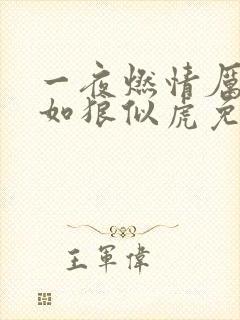 一夜燃情厲
如狼似虎免
王軍偉